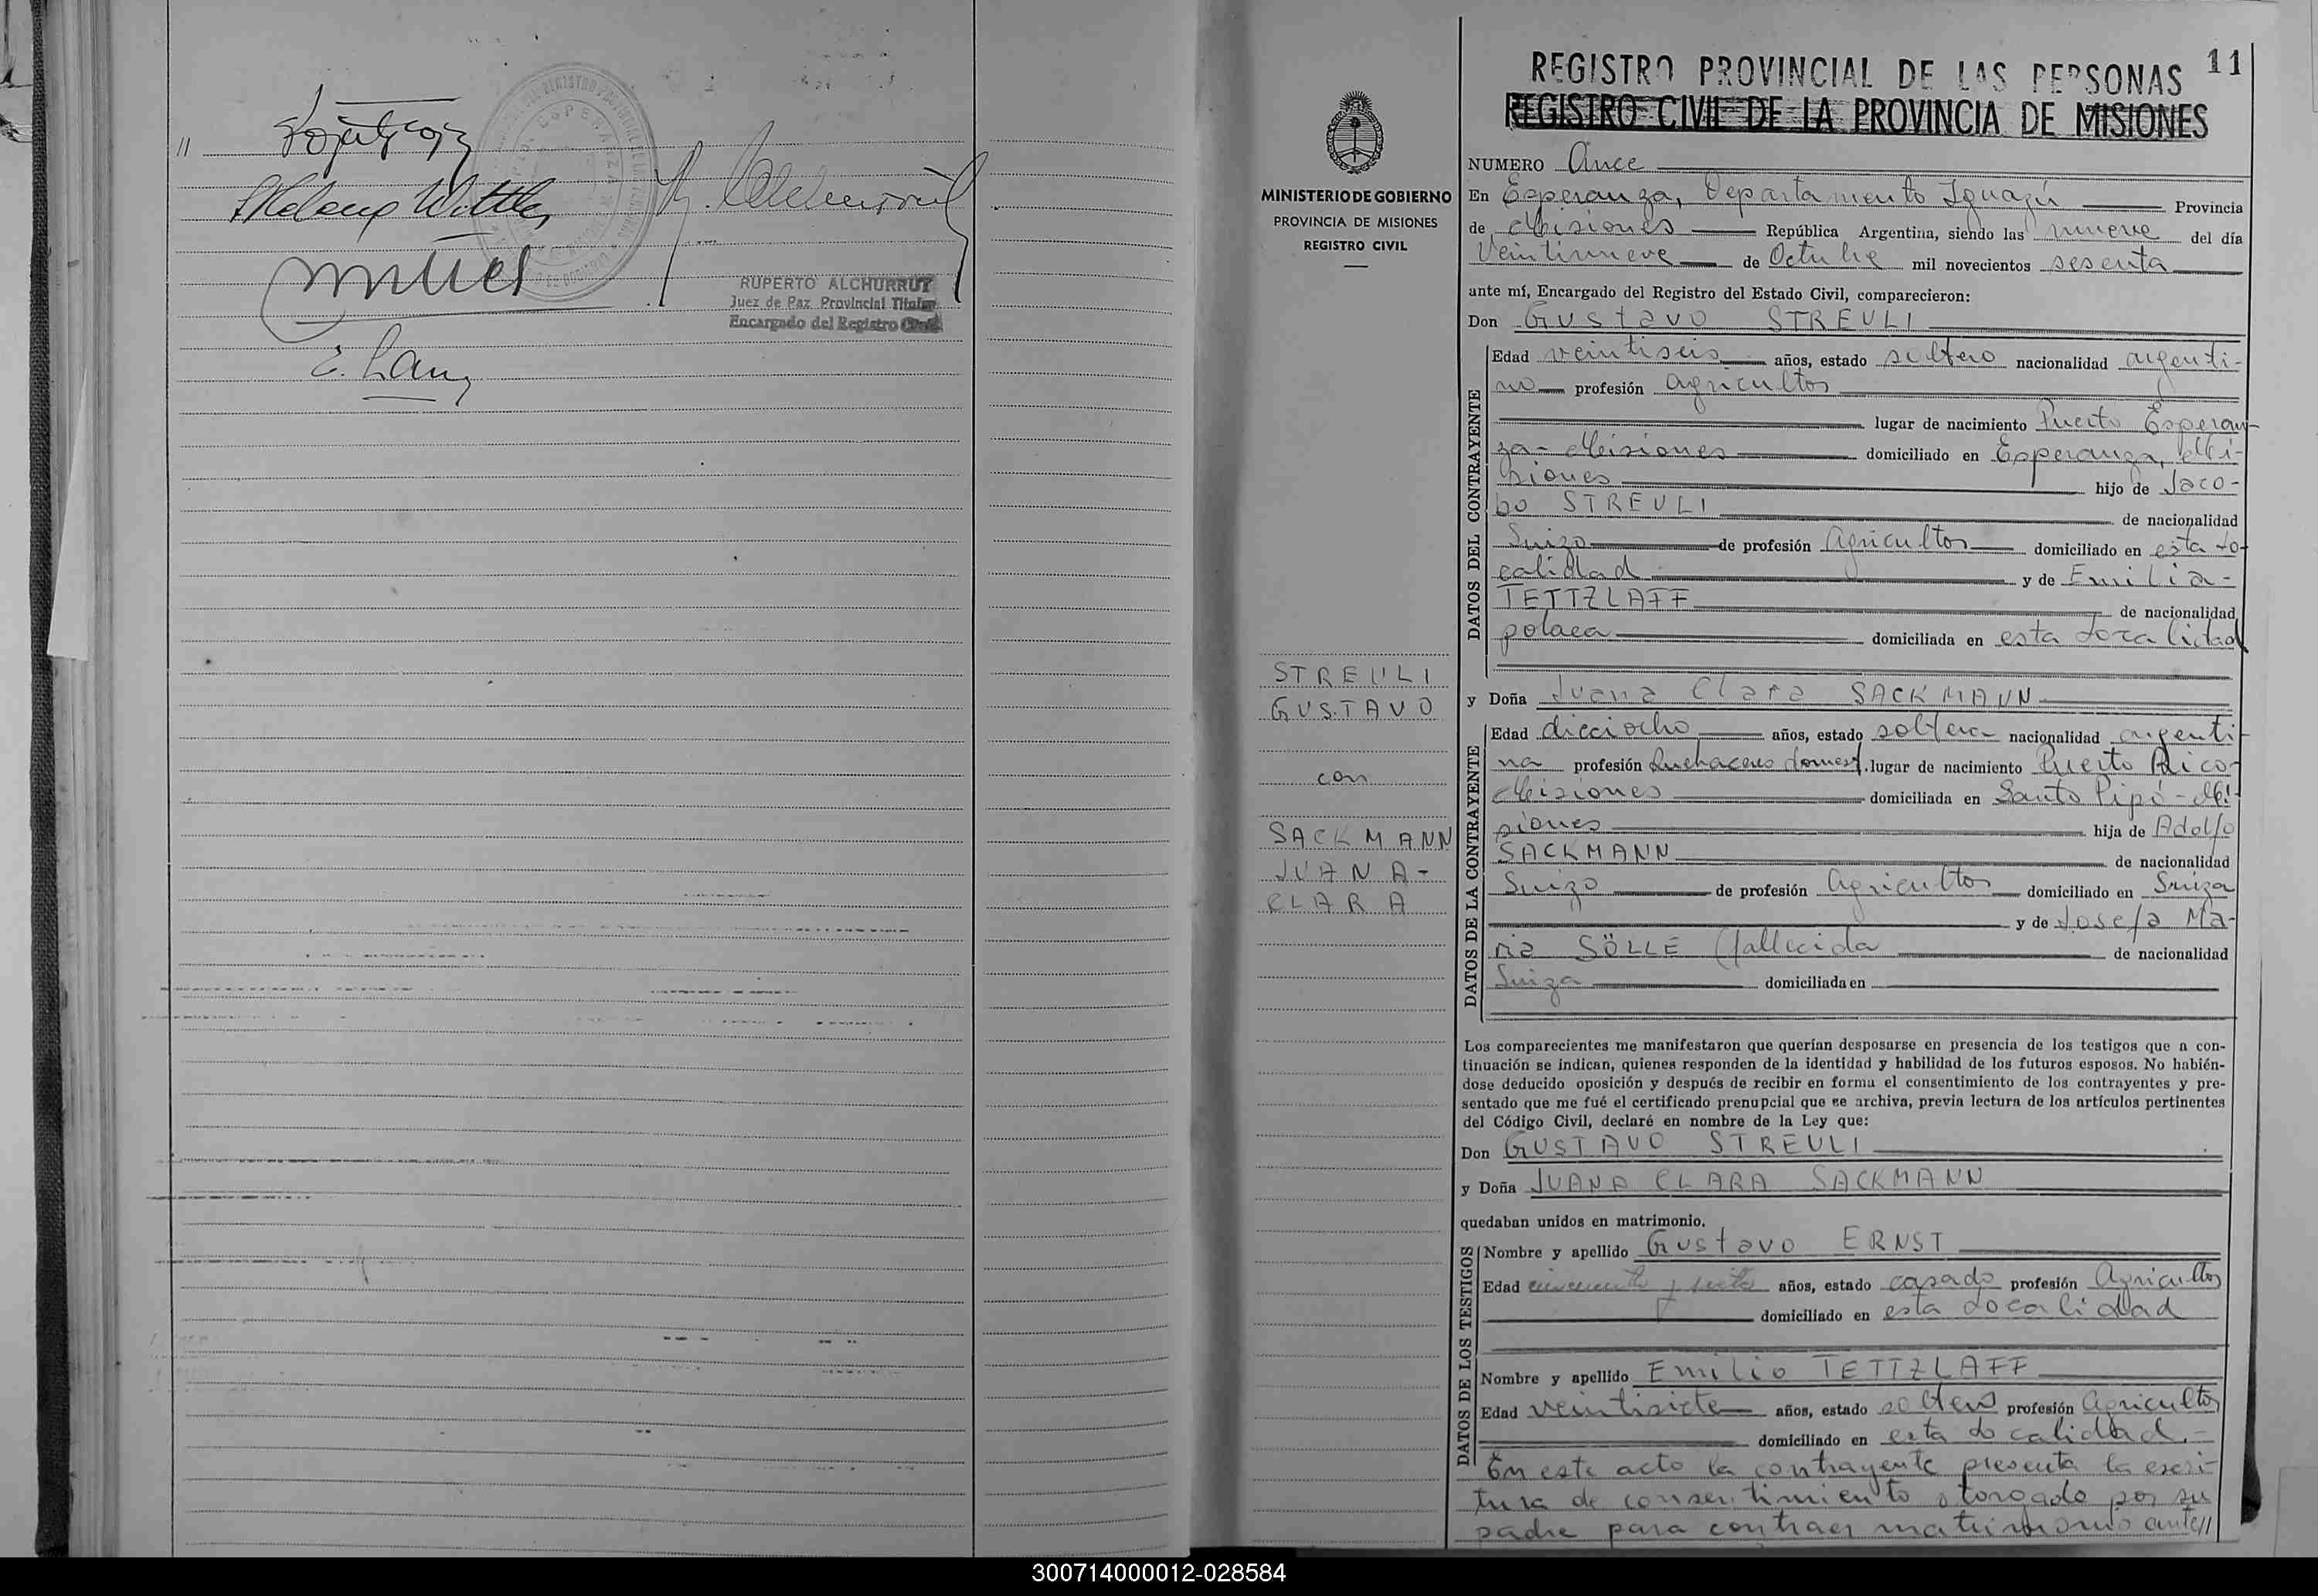 //
E. Lang
RUPERTO ALCHURRUT
Juez de Paz Provincial Titular
Encargado del Registro Civil
11
REGISTRO PROVINCIAL DE LAS PERSONAS
REGISTRO CIVIL DE LA PROVINCIA DE MISIONES
MINISTERIO DE GOBIERNO
PROVINCIA DE MISIONES
REGISTRO CIVIL
STREULI
GUSTAVO
con
SACKMANN
JUANA-
CLARA
NUMERO Once
En Esperanza, Departamento Iguazú Provincia
de Misiones República Argentina, siendo las nueve del día
Veintinueve de Octubre mil novecientos sesenta
ante mí, Encargado del Registro del Estado Civil, comparecieron:
Don Gustavo STREULI
DATOS DEL CONTRAYENTE
Edad veintiseis años, estado soltero nacionalidad argenti-
no profesión agricultor
lugar de nacimiento Puerto Esperan-
za-Misiones domiciliado en Esperanza, Mi-
siones hijo de Jaco-
bo STREULI de nacionalidad
Suizo de profesión Agricultor domiciliado en esta lo-
calidad y de Emilia-
TETTZLAFF de nacionalidad
polaca domiciliada en esta localidad
y Doña Juana Clara SACKMANN
DATOS DE LA CONTRAYENTE
Edad dieciocho años, estado soltera nacionalidad argenti-
na profesión Quehaceres domest. lugar de nacimiento Puerto Rico-
Misiones domiciliada en Santo Pipó-Mi-
siones hija de Adolfo
SACKMANN de nacionalidad
Suizo de profesión Agricultor domiciliado en Suiza
y de Josefa Ma-
ria SÖLLE (fallecida de nacionalidad
Suiza domiciliada en
Los comparecientes me manifestaron que querían desposarse en presencia de los testigos que a con-
tinuación se indican, quienes responden de la identidad y habilidad de los futuros esposos. No habién-
dose deducido oposición y después de recibir en forma el consentimiento de los contrayentes y pre-
sentado que me fué el certificado prenupcial que se archiva, previa lectura de los artículos pertinentes
del Código Civil, declaré en nombre de la Ley que:
Don GUSTAVO STREULI
y Doña JUANA CLARA SACKMANN
quedaban unidos en matrimonio.
DATOS DE LOS TESTIGOS
Nombre y apellido Gustavo ERNST
Edad cincuenta y siete años, estado casado profesión Agricultor
domiciliado en esta localidad
Nombre y apellido Emilio TETTZLAFF
Edad veintisiete años, estado soltero profesión Agricultor
domiciliado en esta localidad.-
En este acto la contrayente presenta la escri-
tura de consentimiento otorgado por su
padre para contraer matrimonio ante//
300714000012-028584